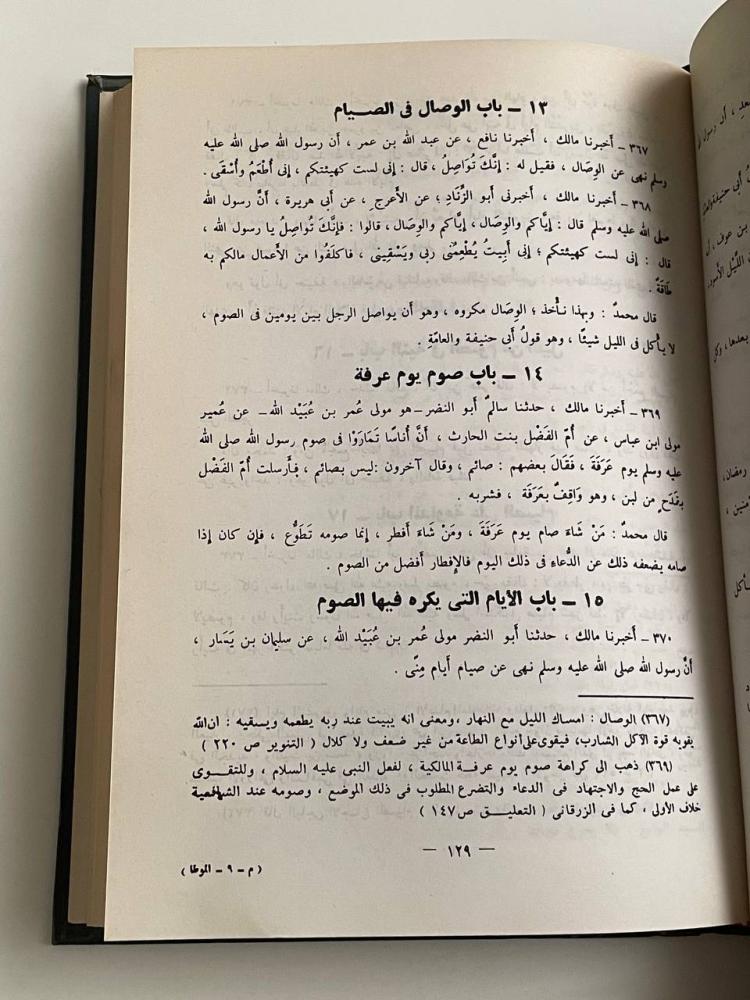 ١٣ ــ باب الوصال فى الصــيام
٣٦٧ ــ أخبرنا مالك ، أخبرنا نافع ، عن عبد الله بن عمر ، أن رسول الله صلى الله عليه
وسلم نهى عن الوِصَال ، فقيل له : إِنَّكَ تُوَاصِلُ ، قال : إنى لست كهيئتكم ، إنى أُطْعَمُ وأُسْقَى .
٣٦٨ ــ أخبرنا مالك ، أخبرنى أبو الزِّنَادِ ؛ عن الأَعرجِ ، عن أبى هريرة ، أنَّ رسول الله
صلى الله عليه وسلم قال : إِياكم والوِصال ، إِيَّاكم والوِصال ، قالوا : فإِنَّكَ تُواصِلُ يا رسول الله ،
قال : إنى لست كهيئتكم ؛ إنى أَبِيتُ يُطْعِمُنى ربى ويَسْقِينى ، فاكلَفُوا من الأَعمال مالكم به
طَاقَةٌ .
قال محمدٌ : وبهذا نـأْخذ ؛ الوِصَال مكروه ، وهو أن يواصل الرجل بين يومين فى الصوم ،
لا يـأْكل فى الليل شيئًا ، وهو قولُ أبى حنيفة والعامَّةِ .
١٤ ــ باب صوم يوم عرفة
٣٦٩ ــ أخبرنا مالك ، حدثنا سالمٌ أبو النضر ــ هو مولى عُمر بن عُبَيْد الله ــ عن عُمير
مولى ابن عباس ، عن أُمِّ الفَضْل بنت الحارث ، أَنَّ أُناسًا تَمَارَوْا فى صوم رسول الله صلى الله
عليه وسلم يوم عَرَفَةَ ، فَقَالَ بعضهم : صائم ، وقال آخرون : ليس بصائم ، فـأرسلت أُمّ الفَضْل
بقَدَحٍ من لبن ، وهو وَاقِفٌ بعَرَفَةَ ، فشربه .
قال محمدٌ : مَنْ شَاءَ صام يوم عَرَفَةَ ، ومَنْ شَاءَ أفطر ، إنما صومه تَطَوُّع ، فإن كان إذا
صامه يضعفه ذلك عن الدُّعاءِ فى ذلك اليوم فالإفطار أفضل من الصوم .
١٥ ــ باب الأيام التى يكره فيها الصوم
٣٧٠ ــ أخبرنا مالك ، حدثنا أبو النضر مولى عُمر بن عُبَيْد الله ، عن سليمان بن يَسَار ،
أنَّ رسول الله صلى الله عليه وسلم نهى عن صيام أيام مِنًى .
(٣٦٧) الوصال : امساك الليل مع النهار ، ومعنى انه يبيت عند ربه يطعمه ويسقيه : ان الله
يقويه قوة الآكل الشارب، فيقوى على أنواع الطاعة من غير ضعف ولا كلال ( التنوير ص ٢٢٠ )
(٣٦٩) ذهب الى كراهة صوم يوم عرفة المالكية ، لفعل النبى عليه السلام ، وللتقوى
على عمل الحج والاجتهاد فى الدعاء والتضرع المطلوب فى ذلك الموضع ، وصومه عند الشافعية
خلاف الأولى ، كما فى الزرقانى ( التعليــق ص ١٤٧ )
ــ ١٢٩ ــ
( م ــ ٩ ــ الموطا )